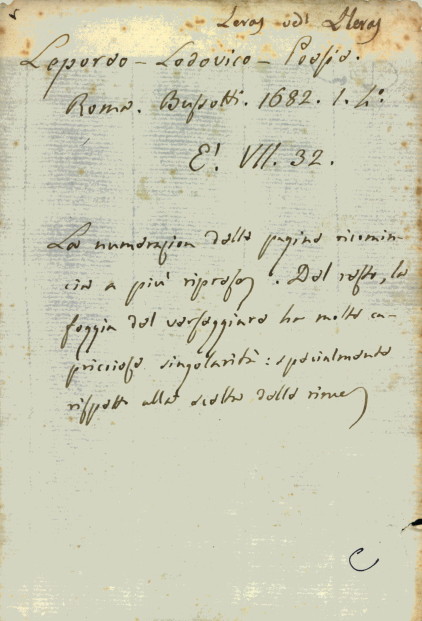 Leporeo - Lodovico - Poesie.
Roma. Bussotti. 1682. 1. 4°.
E'. VII. 32.
La numerazion delle pagine ricomin-
cia a più riprese. Del resto, la
foggia del verseggiare ha molte ca-
pricciose singolarità: specialmente
rispetto alla scelta delle rime
C